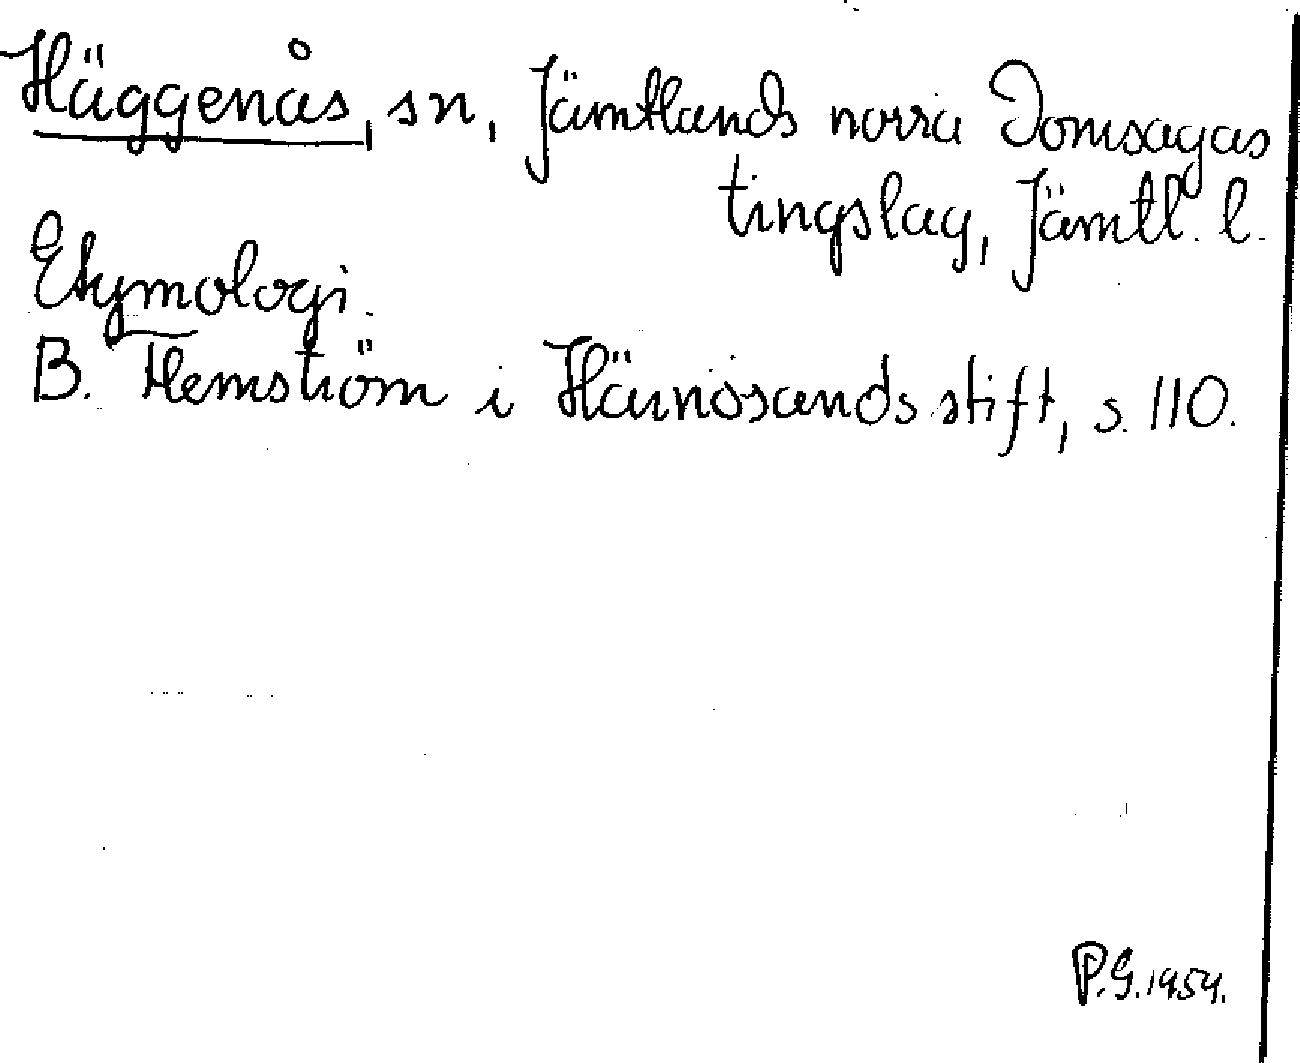 Häggenås, sn, Jämtlands norra Domsagas
tingslag, Jämtl. l.
Etymologi.
B. Hemström i Härnösands stift, s. 110.
P.G. 1954.